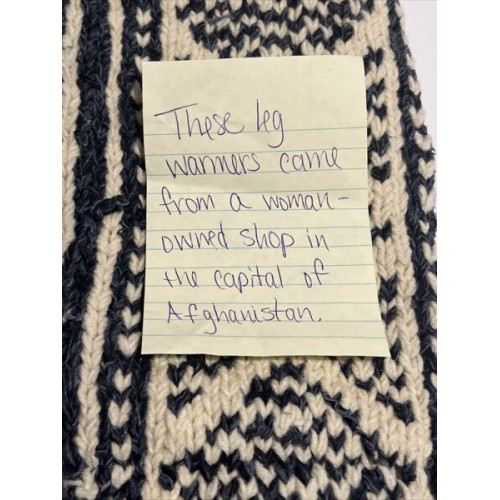 These leg
warmers came
from a woman-
owned shop in
the capital of
Afghanistan.